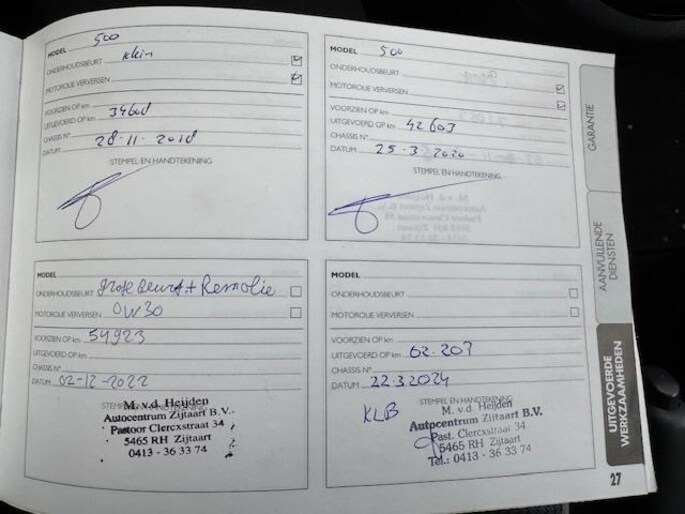 MODEL 500
ONDERHOUDSBEURT klein
MOTOROLIE VERVERSEN
VOORZIEN OP km
UITGEVOERD OP km 34608
CHASSIS N°
DATUM 28-11-2018
STEMPEL EN HANDTEKENING
MODEL 500
ONDERHOUDSBEURT
MOTOROLIE VERVERSEN
VOORZIEN OP km
UITGEVOERD OP km 42603
CHASSIS N°
DATUM 25-3-2020
STEMPEL EN HANDTEKENING
MODEL
ONDERHOUDSBEURT grote Beurt + Remolie
MOTOROLIE VERVERSEN 0W30
VOORZIEN OP km 54923
UITGEVOERD OP km
CHASSIS N°
DATUM 02-12-2022
STEMPEL EN HANDTEKENING
M. v.d. Heijden
Autocentrum Zijtaart B.V.
Pastoor Clercxstraat 34
5465 RH Zijtaart
0413 - 36 33 74
MODEL
ONDERHOUDSBEURT
MOTOROLIE VERVERSEN
VOORZIEN OP km
UITGEVOERD OP km 62.207
CHASSIS N°
DATUM 22.3.2024
STEMPEL EN HANDTEKENING
KLB
M. v.d. Heijden
Autocentrum Zijtaart B.V.
Past. Clercxstraat 34
5465 RH Zijtaart
Tel.: 0413 - 36 33 74
GARANTIE
AANVULLENDE
DIENSTEN
UITGEVOERDE
WERKZAAMHEDEN
27